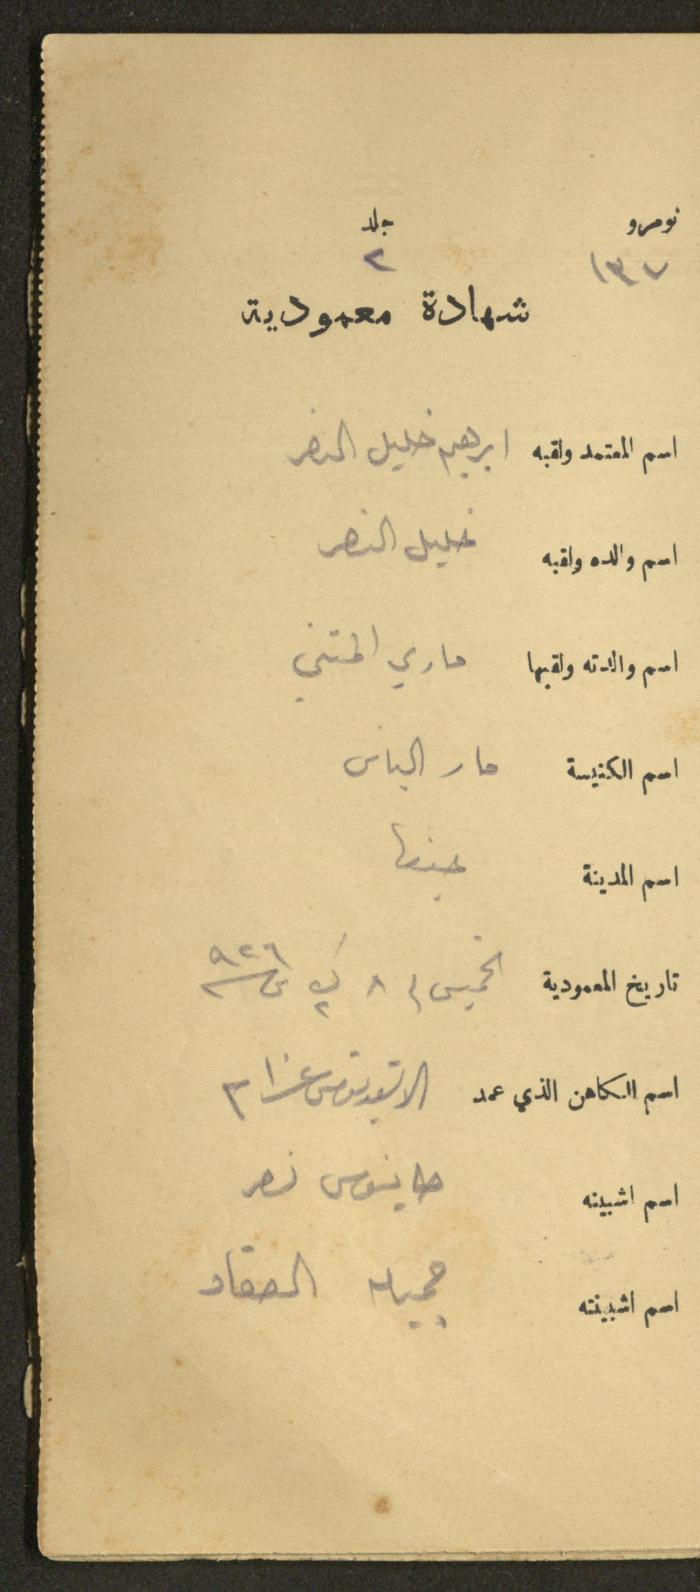 نومرو جلد
١٣٧ ٢
شهادة معمودية
اسم المعتمد ولقبه ابرهيم خليل النصر
اسم والده ولقبه خليل النصر
اسم والدته ولقبها ماري المتني
اسم الكنيسة مار الياس
اسم المدينة حيفا
تاريخ المعمودية الخميس في ٨ ك٢ سنة ٩٢٦
اسم الكاهن الذي عمد
اسم اشبينه نصر
اسم اشبينته جميله